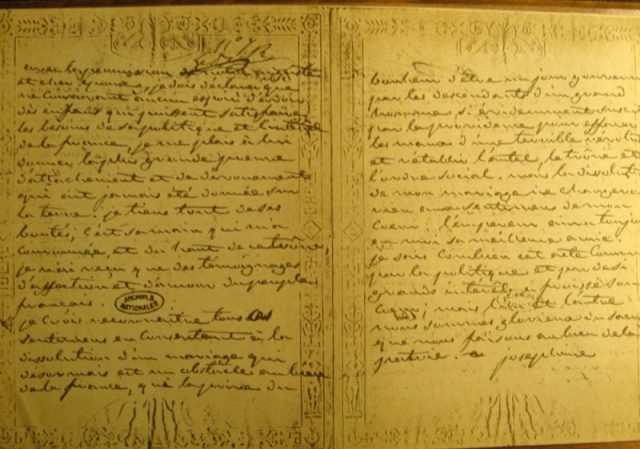 N° 7 & 2
avec la permission de notre auguste
et cher époux, je dois declarer que
ne conservant aucun espoir d'avoir
des enfans qui puissent satisfaire
les besoins de sa politique et l'interet
de la france, je me plais à lui
donner la plus grande preuve
d'attachement et de devouement
qui ait jamais été donnée sur
la terre. je tiens tout de ses
bontés; c'est sa main qui m'a
couronnée, et du haut de ce trône,
je n'ai reçu que des témoignages
d'affection et d'amour du peuple
français.
ARCHIVES NATIONALES
je crois reconnoitre tous ces
sentimens en consentant à la
dissolution d'un mariage qui
desormais est un obstacle au bien
de la france, qui la prive du
bonheur d'être un jour gouvernée
par les descendants d'un grand
homme si évidemment suscité
par la providence pour effacer
les maux d'une terrible révolution
et rétablir l'autel, le trône et
l'ordre social. mais la dissolution
de mon mariage ne changera
rien aux sentimens de mon
coeur. l'empereur aura toujours
en moi sa meilleure amie.
je sais combien cet acte commandé
par la politique et par de si
grands interets a froissé son
coeur; mais l'un et l'autre
nous sommes glorieux du sacrifice
que nous faisons au bien de la
patrie. Josephine